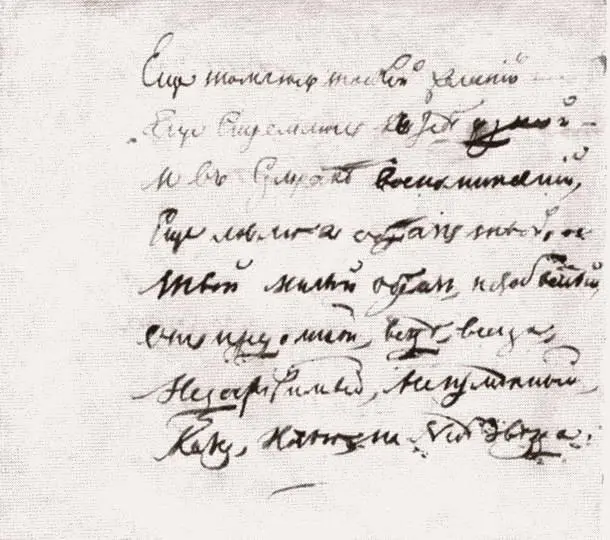 Еще томлюсь тоской желаній —
Еще стремлюсь къ тебѣ душой —
И въ сумракѣ воспоминаній,
Еще ловлю я образъ твой..
Твой милый образъ, незабвенный,
Онъ предо мной, вездѣ, всегда,
Недостижимый, неизмѣнный,
Какъ ночью на небѣ звѣзда.